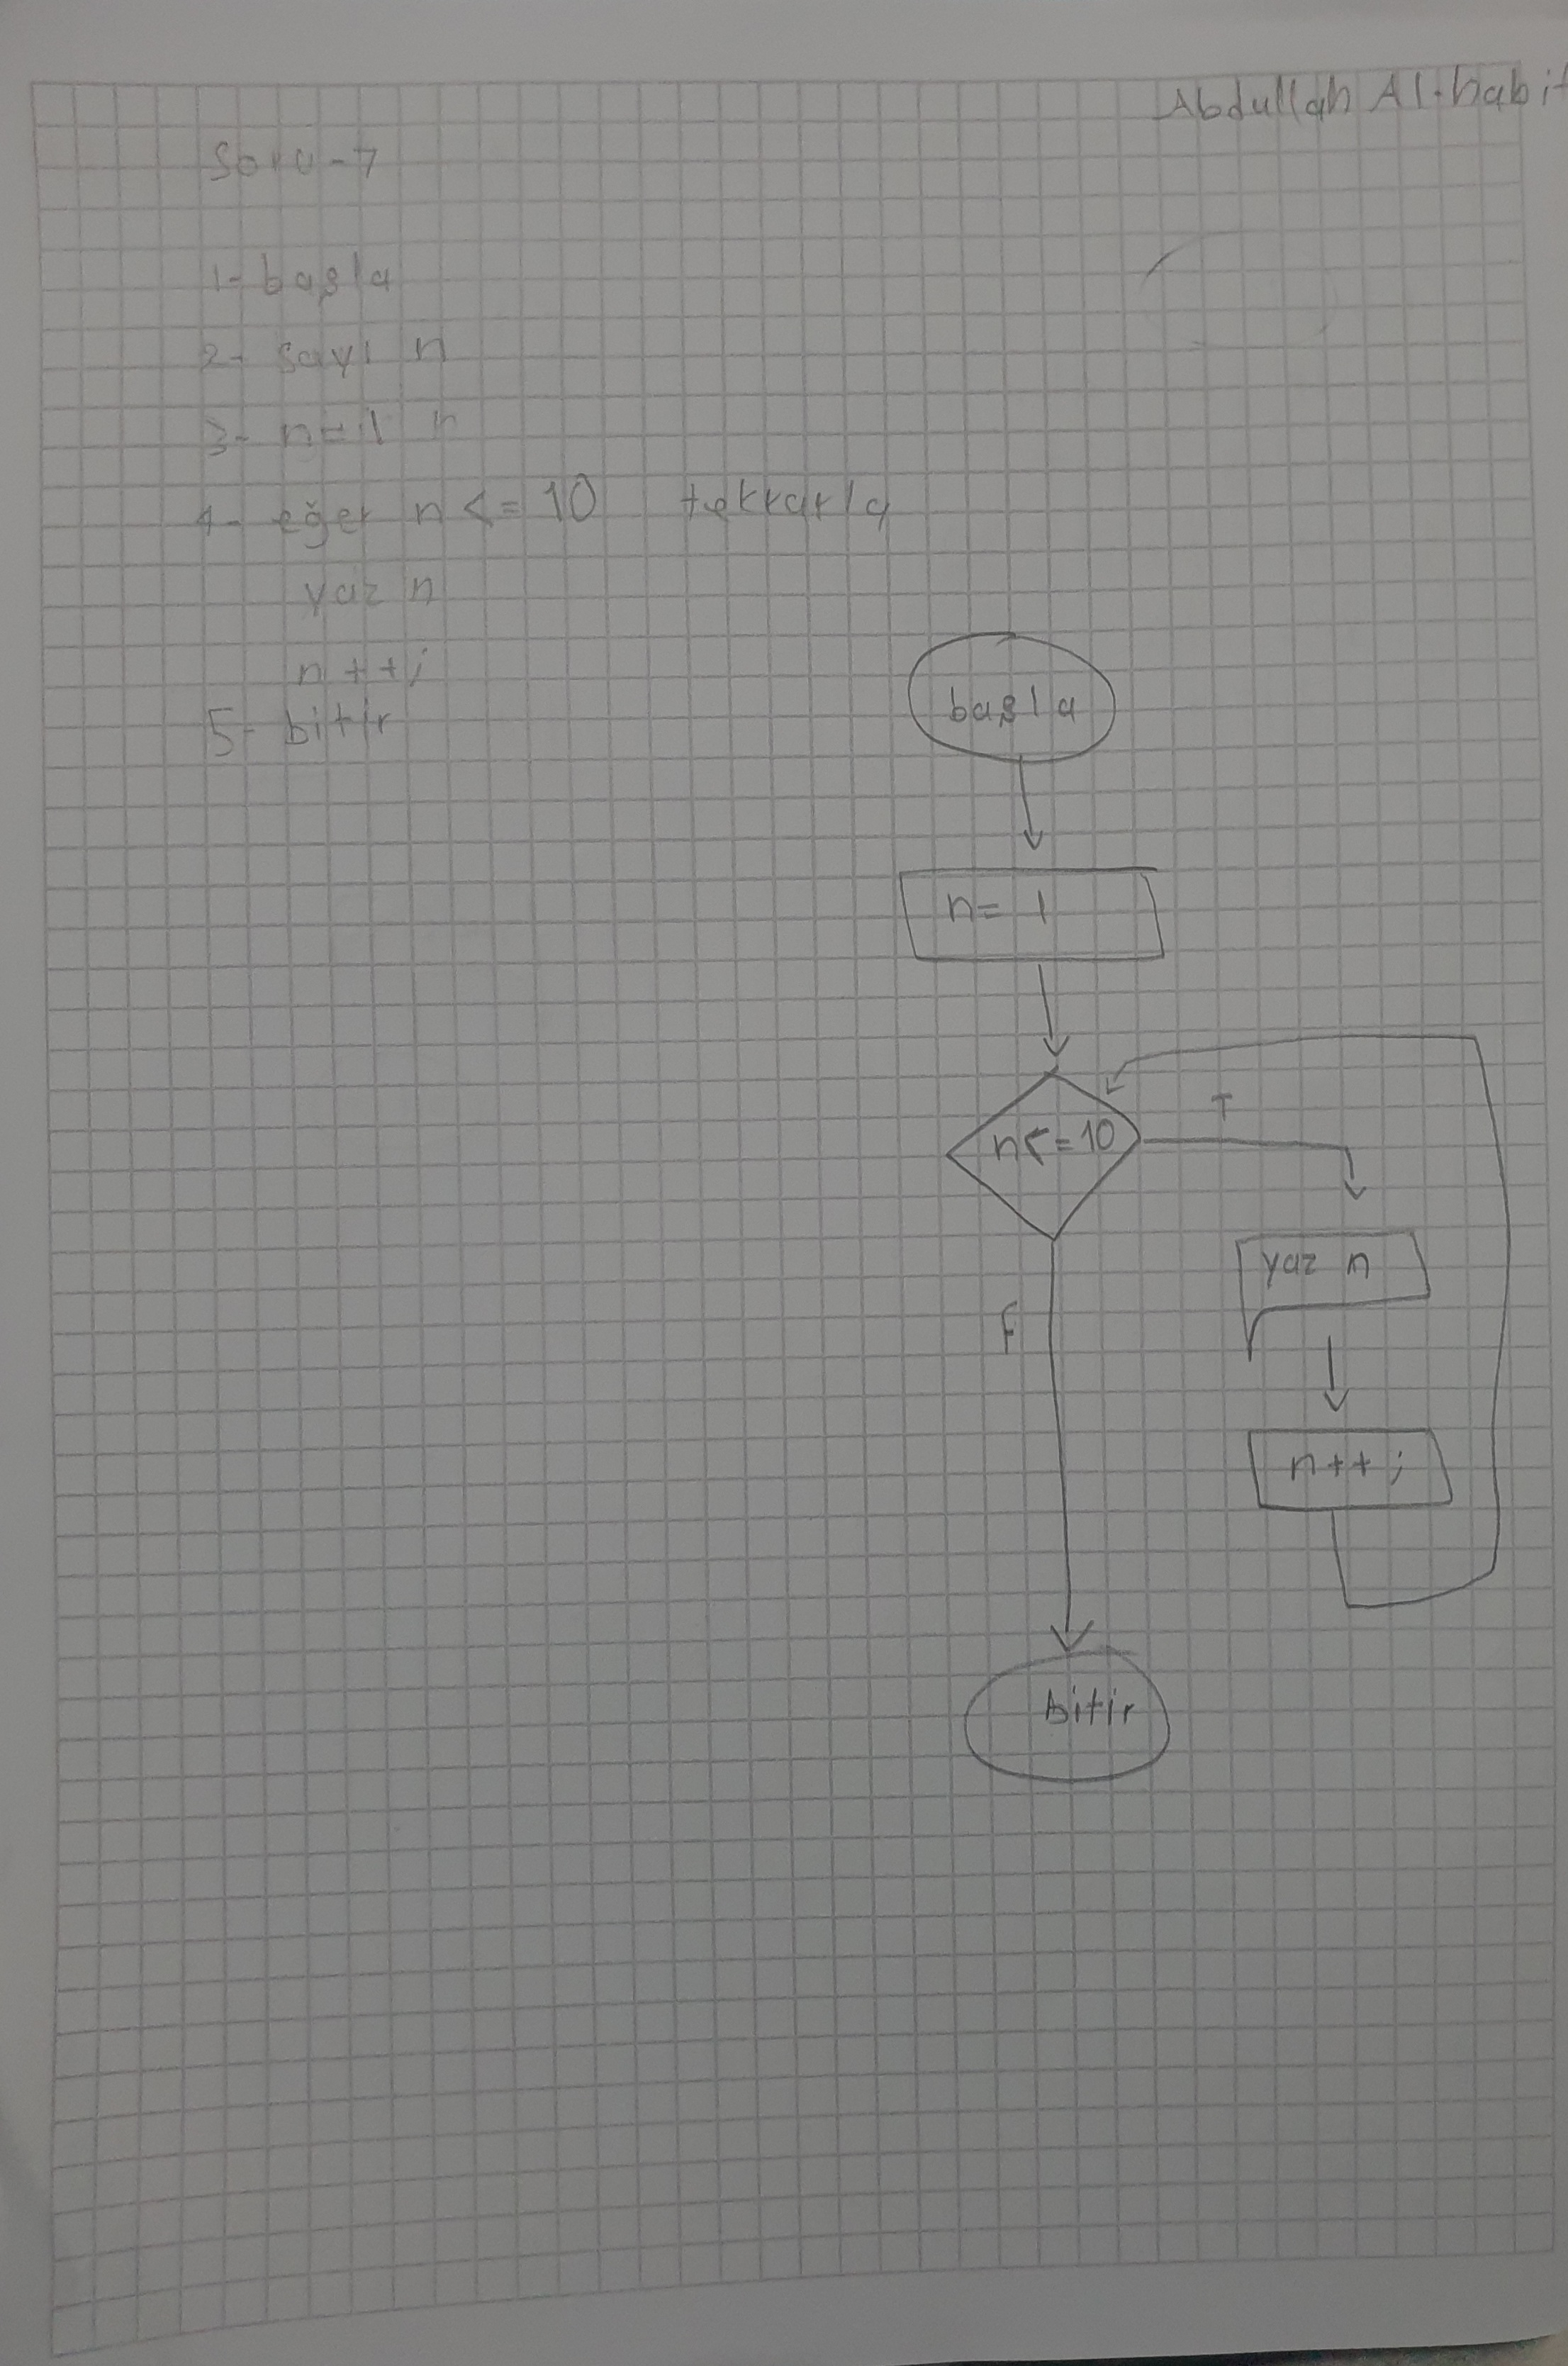 Abdullah Al-habit
Soru-7
1- başla
2- sayı n
3- n=1 n
4- eğer n <= 10 tekrarla
yaz n
n++;
5- bitir
başla
n= 1
n<=10
T
yaz n
F
n++;
bitir